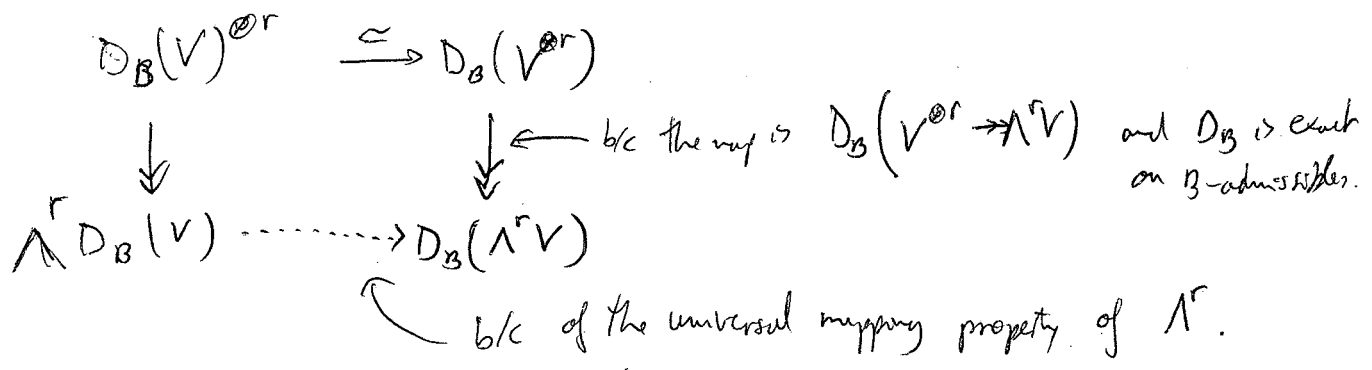 D_B(V)^{⊗r} \xrightarrow{≃} D_B(V^{⊗r})
b/c the map is D_B(V^{⊗r} ↠ Λ^r V) and D_B is exact
on B-admissibles.
Λ^r D_B(V) ⇢ D_B(Λ^r V)
b/c of the universal mapping property of Λ^r.